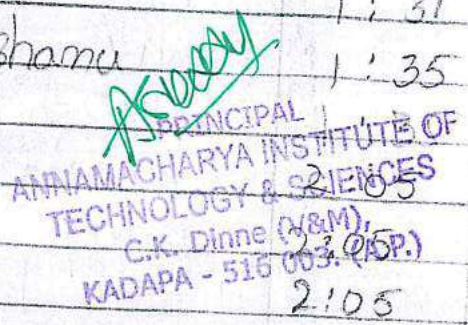 1:31
Bhanu 1:35
PRINCIPAL
ANNAMACHARYA INSTITUTE OF
2:05
TECHNOLOGY & SCIENCES
C.K. Dinne (V&M),
2:05
KADAPA - 516 003. (A.P.)
2:05